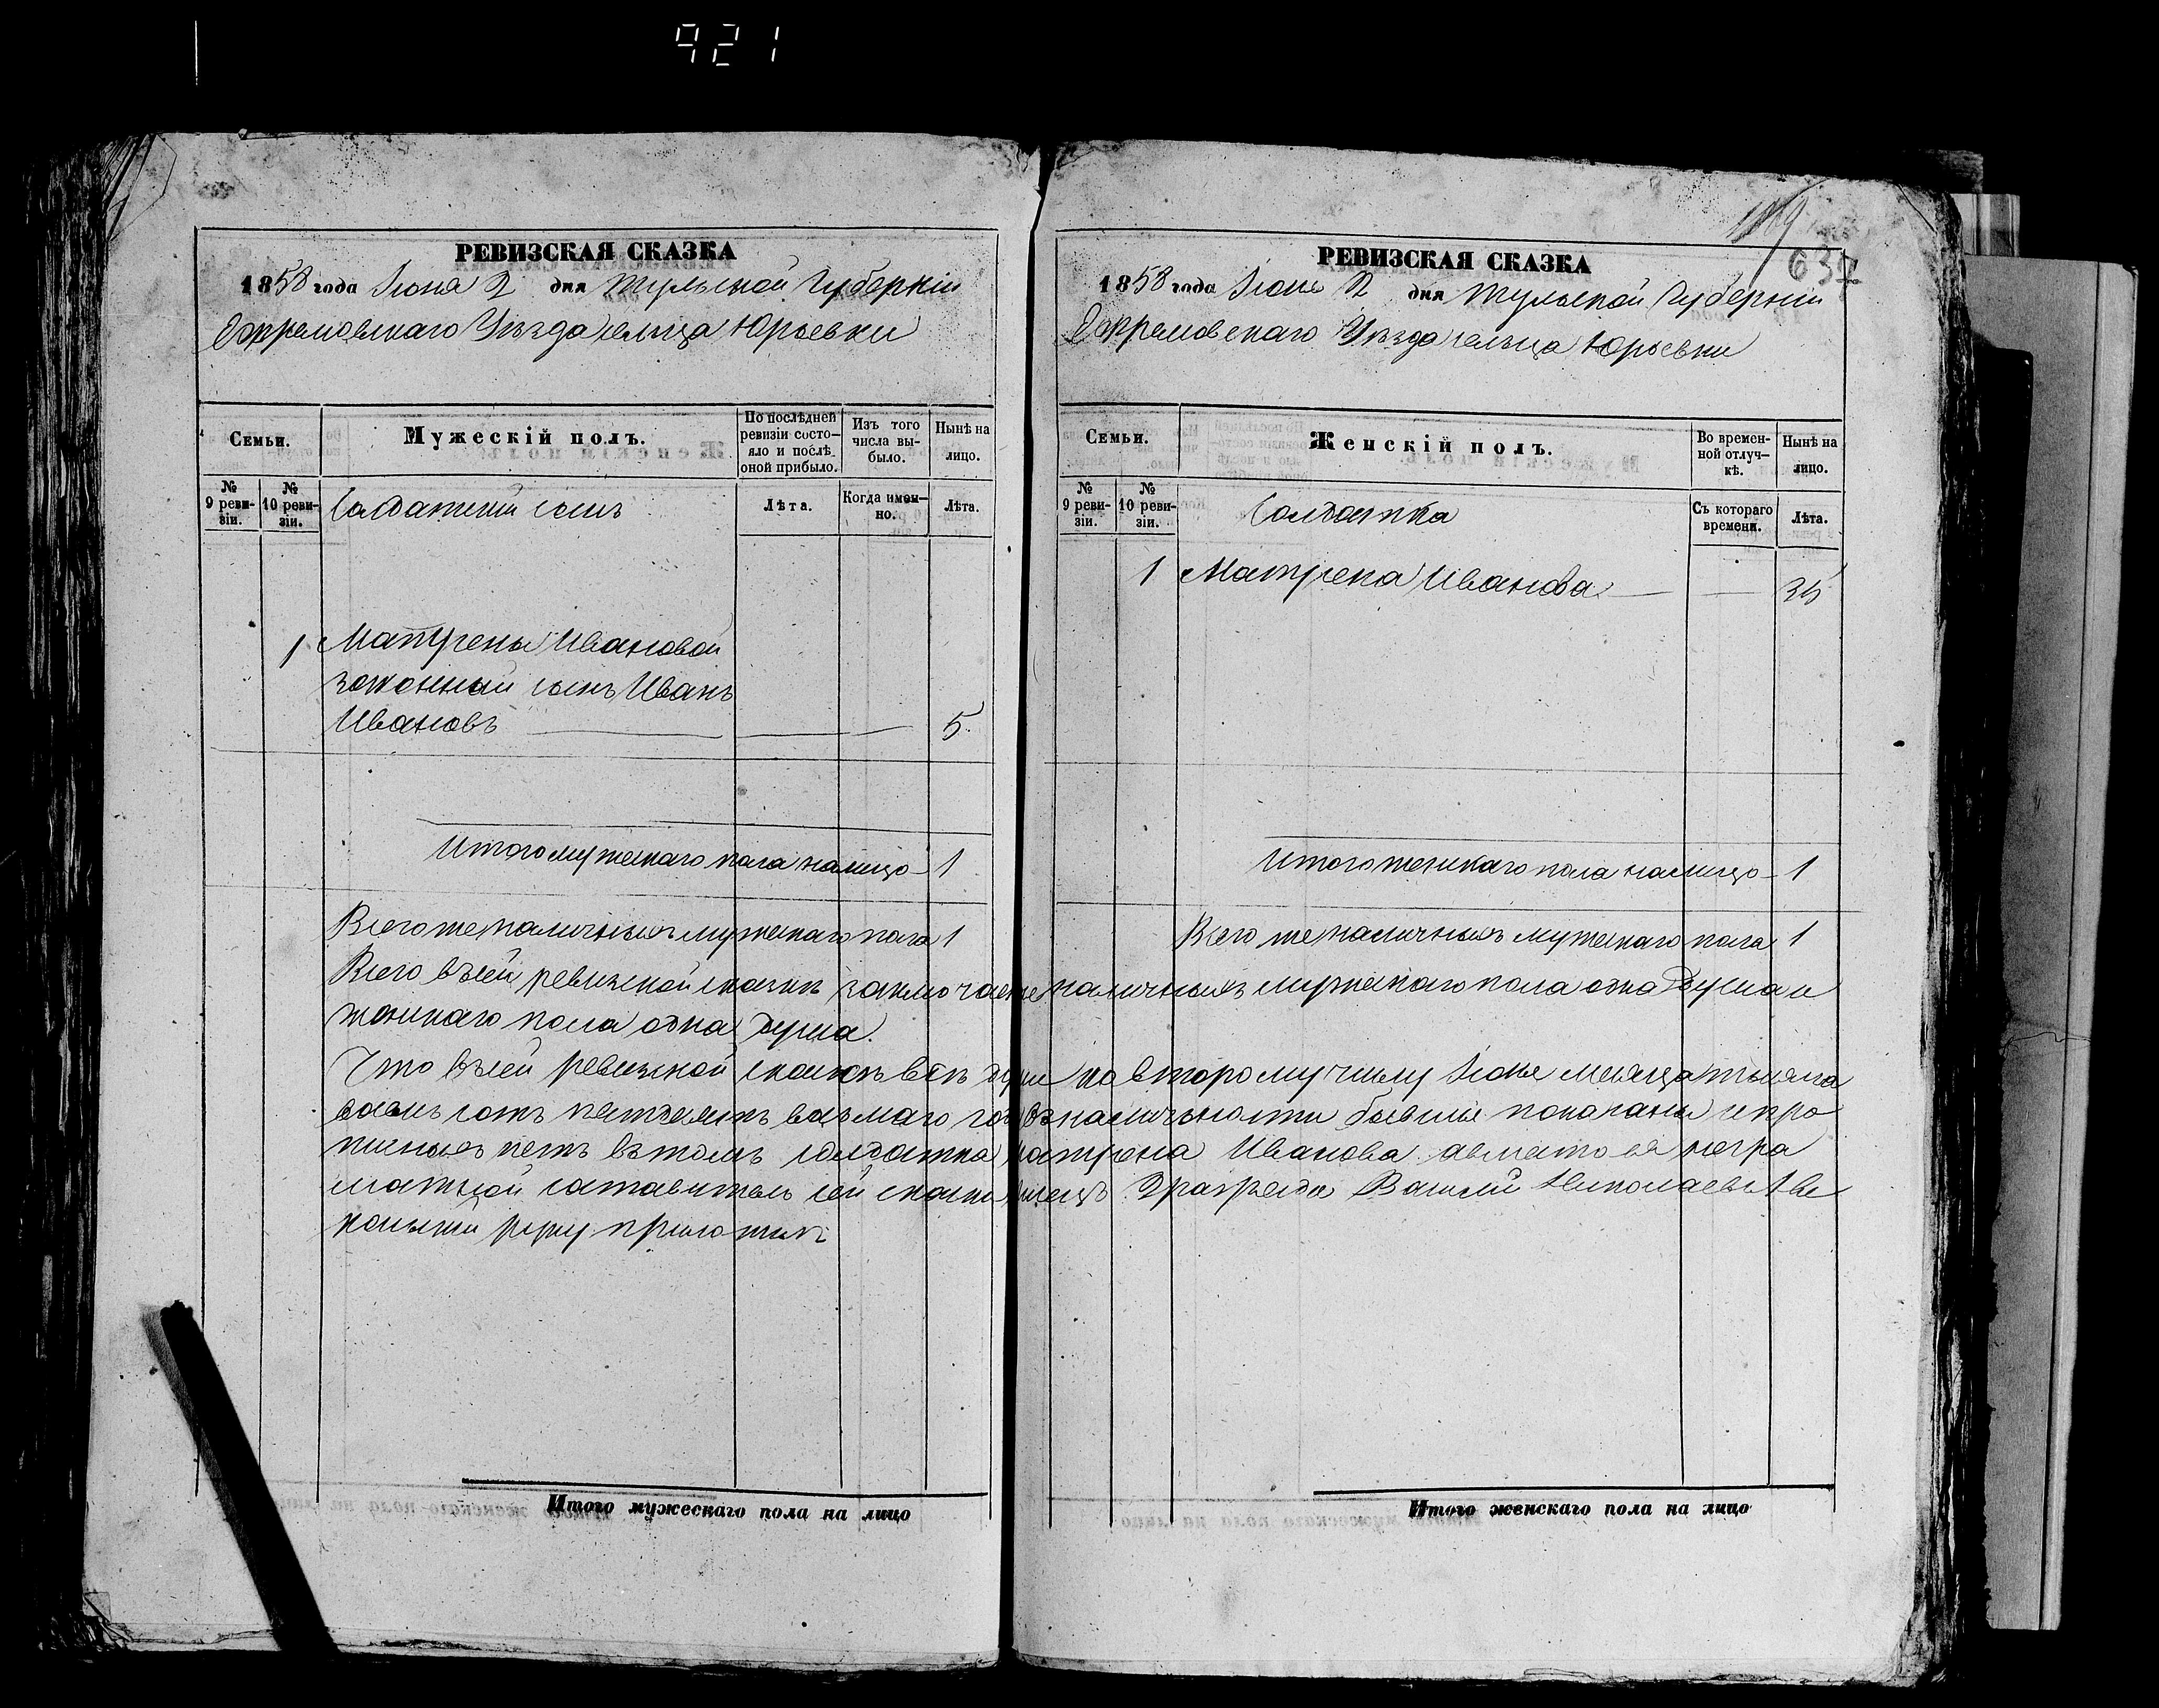 921
РЕВИЗСКАЯ СКАЗКА
1858 года Іюня 2 дня Тульской Губерніи
Ефремовскаго Уѣзда сельца Юрьевки
Семьи.
Мужескій полъ.
По послѣдней ревизіи состояло и послѣ оной прибыло.
Изъ того числа выбыло.
Нынѣ на лицо.
№ 9 ревизіи.
№ 10 ревизіи.
Солдатскій сынъ
Лѣта.
Когда именно.
Лѣта.
1 Матрены Ивановой
законный сынъ Иванъ
Ивановъ 5
Итого мужескаго пола налицо 1
Всего же наличныхъ мужескаго пола 1
РЕВИЗСКАЯ СКАЗКА
637
1858 года Іюня 2 дня Тульской Губерніи
Ефремовскаго Уѣзда сельца Юрьевки
Семьи.
Женскій полъ.
Во временной отлучкѣ.
Нынѣ на лицо.
№ 9 ревизіи.
№ 10 ревизіи.
Солдатка
Съ котораго времени.
Лѣта.
1 Матрена Иванова 35
Итого женскаго пола налицо 1
Всего же наличныхъ мужескаго пола 1
Всего въ сей ревизской сказкѣ заключается наличныхъ мужескаго пола одна душа и
женскаго пола одна душа.
Что въ сей ревизской сказкѣ всѣ души по второму числу Іюня месяца тысяча
восемь сотъ пятдесятъ восьмаго года въ наличности бывшіе показаны и про
писныхъ нетъ въ томъ солдатка Матрена Иванова а вместо ея негра
мотной составитель сей сказки писецъ 2 разряда Василій Николаевъ
руку приложилъ
Итого мужескаго пола на лицо
Итого женскаго пола на лицо